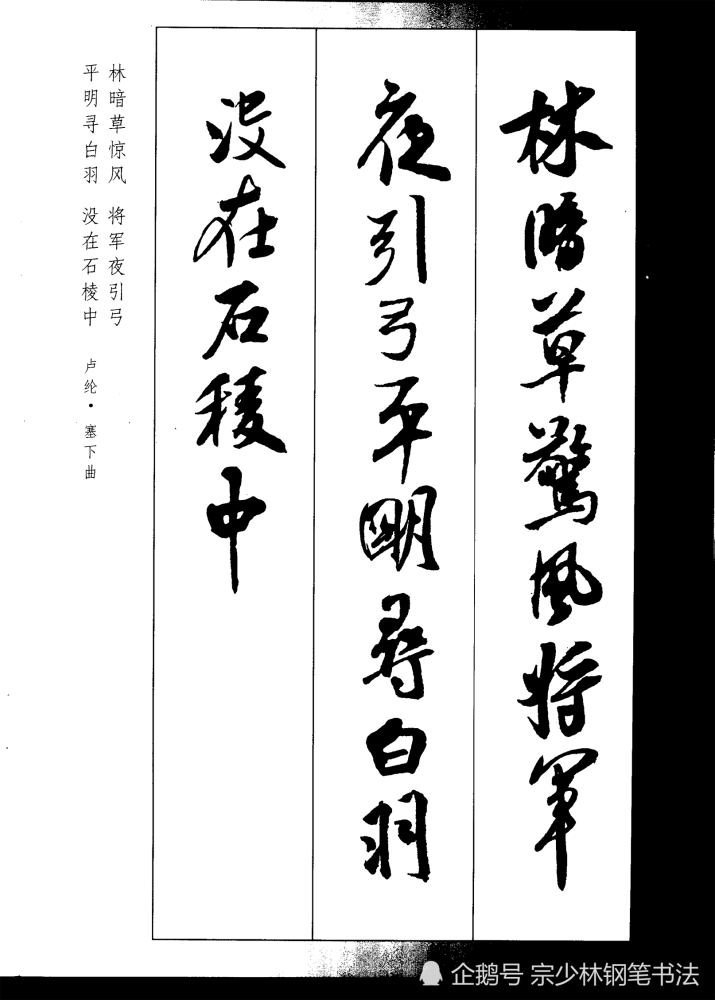 林暗草驚風將軍
夜引弓平明尋白羽
没在石稜中
林暗草惊风 将军夜引弓
平明寻白羽 没在石棱中
卢纶·塞下曲
企鹅号 宗少林钢笔书法